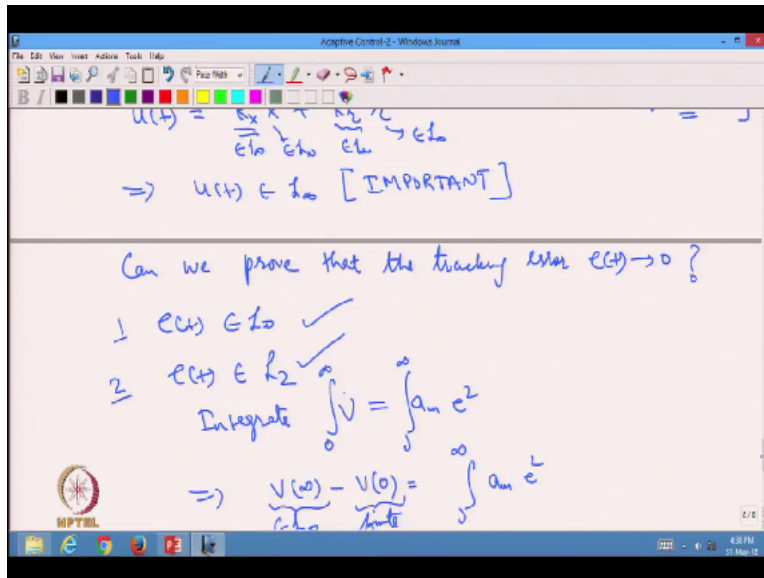 Adaptive Control-2 - Windows Journal
File Edit View Insert Actions Tools Help
Page Width
B I
u(t) = kx x + kr r
∈L∞ ∈L∞ ∈L∞ → ∈L∞
=> u(t) ∈ L∞ [IMPORTANT]
Can we prove that the tracking error e(t) → 0 ?
1 e(t) ∈ L∞ ✓
2 e(t) ∈ L2 ✓
Integrate ∫₀^∞ V̇ = ∫₀^∞ am e²
=> V(∞) - V(0) = ∫₀^∞ am e²
∈L∞ finite
NPTEL
8/8
4:38 PM
31-May-18